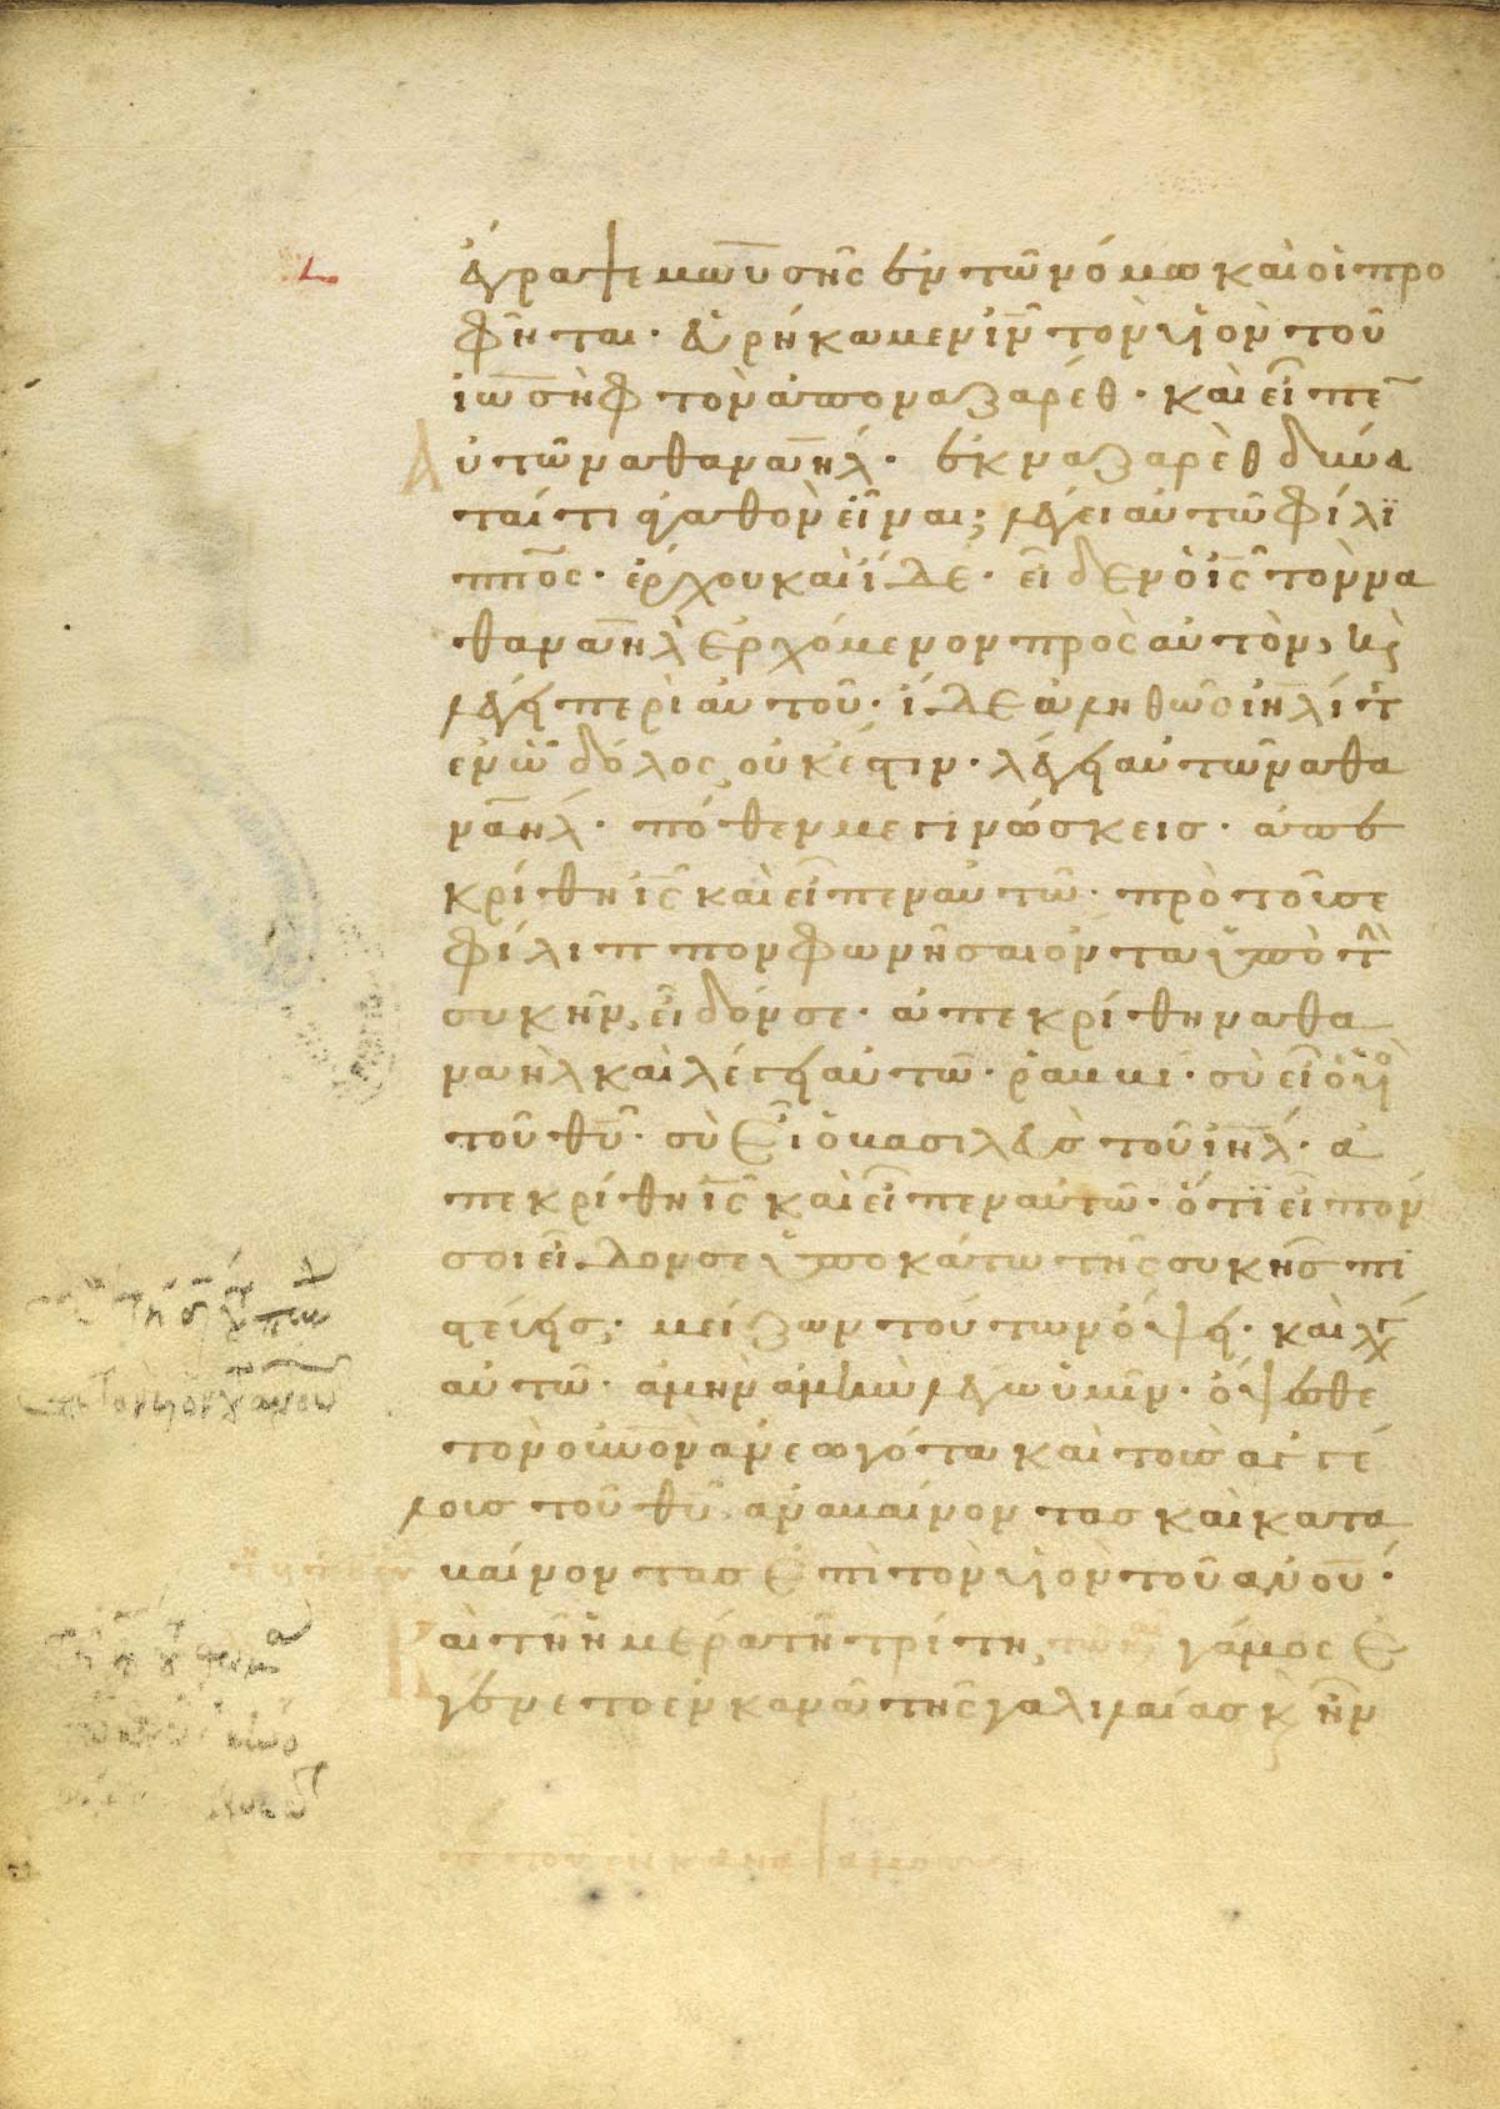 ἔγραψε μωϋσῆς ἐν τῶ νόμω καὶ οἱ προ
φῆται· εὑρήκαμεν ἰν τὸν υἱὸν τοῦ
ἰωσὴφ τὸν ἀπο ναζαρέθ· καὶ εἶπε
αὐτῶ ναθαναήλ· ἐκ ναζαρὲθ δύνα
ταί τι ἀγαθὸν εἶναι; λέγει αὐτῶ φίλι
ππος· ἔρχου καὶ ἴδε· εἶδεν ὁ ἰς τὸν να
θαναὴλ ἐρχόμενον πρὸς αὐτὸν, κὶ
λέγει περὶ αὐτοῦ· ἴδε ἀληθῶς ἰηλίτ
ἐν ὧ δόλος οὐκ ἔστιν· λέγει αὐτῶ ναθα
ναήλ· πόθεν με γινώσκεις· ἀπε
κρίθη ἰς καὶ εἶπεν αὐτῶ· πρὸ τοῦ σε
φίλιππον φωνῆσαι ὄντα ὑπὸ τὴ
συκῆν, εἶδόν σε· ἀπεκρίθη ναθα
ναὴλ καὶ λέγει αὐτῶ· ῥαββί· σὺ εἶ ὁ υἱὸ
τοῦ θυ· σὺ εἶ ὁ βασιλεὺς τοῦ ἰηλ· ἀ
πεκρίθη ἰς καὶ εἶπεν αὐτῶ· ὅτι εἶπόν
σοι εἶδον σε ὑποκάτω τῆς συκῆς πι
στεύεις; μείζων τούτων ὄψει· καὶ λέγ
αὐτῶ· ἀμὴν ἀμὴν λέγω ὑμῖν· ὄψεσθε
τὸν οὐνον ἀνεωγότα καὶ τοὺς ἀγγέ
λους τοῦ θυ ἀναβαίνοντας καὶ κατα
βαίνοντας ἐπὶ τὸν υἱὸν τοῦ ανου·
Καὶ τῆ ἡμέρα τῆ τρίτη, γάμος ἐ
γένετο ἐν κανᾶ τῆς γαλιλαίας κ ἦν